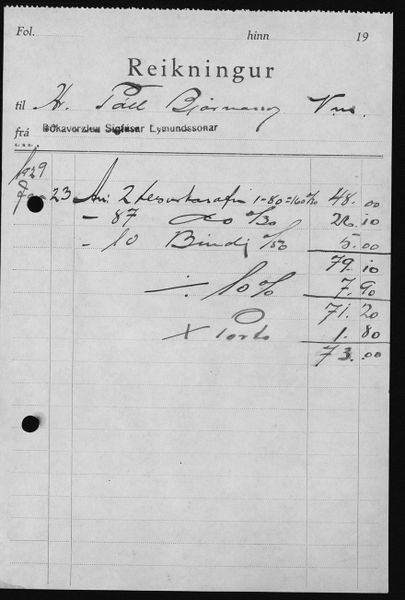 Fol. hinn 19
Reikningur
til Hr. Páll Bjarnason Vm.
frá Bókaverzlun Sigfúsar Eymundssonar
1929
Jan 23 2 1-80 = 48.00
- 87 /30 26.10
- 10 Bindi /50 5.00
79.10
÷ 10% 7.90
71.20
+ Porto 1.80
73.00